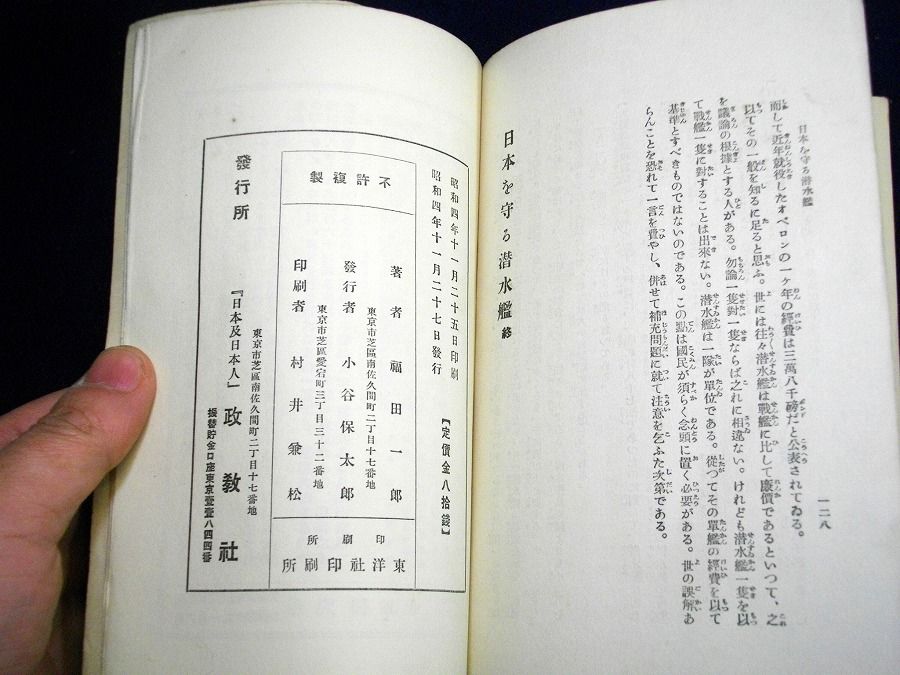 日本を守る潜水艦
一二八
而して近年就役したオベロンの一ケ年の經費は三萬八千磅だと公表されてゐる。
以てその一般を知るに足ると思ふ。世には往々潜水艦は戰艦に比して廉價であるといつて、之
を議論の根據とする人がある。勿論一隻對一隻ならば之れに相違ない。けれども潜水艦一隻を以
て戰艦一隻に對することは出來ない。潜水艦は一隊が單位である。從つてその單艦の經費を以て
基準とすべきものではないのである。この點は國民が須らく念頭に置く必要がある。世の誤解あ
らんことを恐れて一言を費やし、併せて補充問題に就て注意を乞ふた次第である。
日本を守る潜水艦 終
昭和四年十一月二十五日印刷
昭和四年十一月二十七日發行
【定價金八拾錢】
不許複製
著者 福田一郎
東京市芝區南佐久間町二丁目十七番地
發行者 小谷保太郎
東京市芝區愛宕町三丁目三十二番地
印刷者 村井兼松
印刷所 東洋社印刷所
東京市芝區南佐久間町二丁目十七番地
發行所 『日本及日本人』 政教社
振替貯金口座東京壹壹八四四番